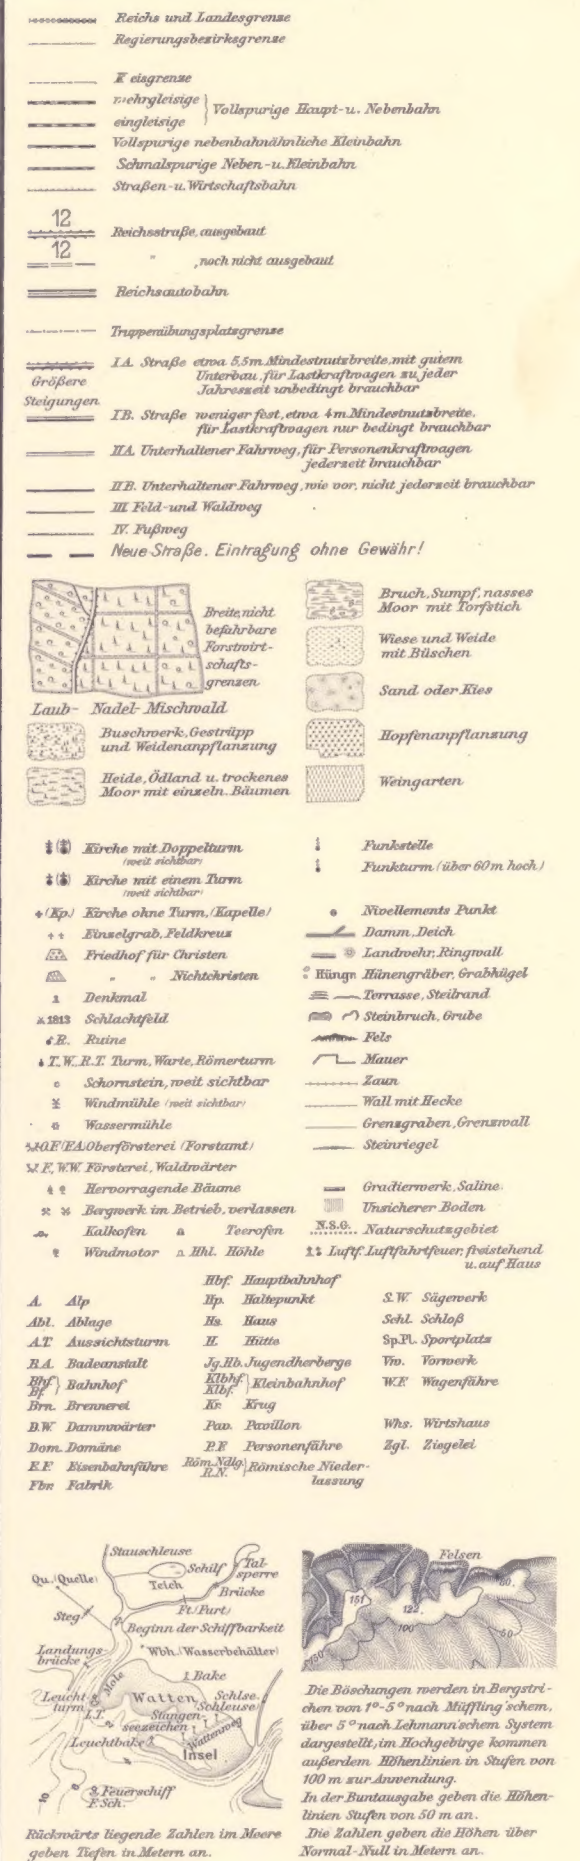 Reichs und Landesgrenze
Regierungsbezirksgrenze
Kreisgrenze
mehrgleisige
eingleisige
Vollspurige Haupt-u. Nebenbahn
Vollspurige nebenbahnähnliche Kleinbahn
Schmalspurige Neben-u. Kleinbahn
Straßen-u. Wirtschaftsbahn
12
Reichsstraße, ausgebaut
12
" , noch nicht ausgebaut
Reichsautobahn
Truppenübungsplatzgrenze
Größere
Steigungen
I A. Straße etwa 5,5m Mindestnutzbreite, mit gutem
Unterbau, für Lastkraftwagen zu jeder
Jahreszeit unbedingt brauchbar
I B. Straße weniger fest, etwa 4m Mindestnutzbreite,
für Lastkraftwagen nur bedingt brauchbar
II A. Unterhaltener Fahrweg, für Personenkraftwagen
jederzeit brauchbar
II B. Unterhaltener Fahrweg, wie vor, nicht jederzeit brauchbar
III. Feld-und Waldweg
IV. Fußweg
Neue Straße. Eintragung ohne Gewähr!
Breite, nicht
befahrbare
Forstwirt-
schafts-
grenzen
Laub- Nadel- Mischwald
Buschwerk, Gestrüpp
und Weidenanpflanzung
Heide, Ödland u. trockenes
Moor mit einzeln. Bäumen
Bruch, Sumpf, nasses
Moor mit Torfstich
Wiese und Weide
mit Büschen
Sand oder Kies
Hopfenanpflanzung
Weingarten
Kirche mit Doppelturm
(weit sichtbar)
Kirche mit einem Turm
(weit sichtbar)
(Kp.) Kirche ohne Turm, (Kapelle)
Einzelgrab, Feldkreuz
Friedhof für Christen
" " Nichtchristen
Denkmal
1813 Schlachtfeld
R. Ruine
T.,W.,R.T. Turm, Warte, Römerturm
Schornstein, weit sichtbar
Windmühle (weit sichtbar)
Wassermühle
O.F. (F.A.) Oberförsterei (Forstamt)
F., W.W. Försterei, Waldwärter
Hervorragende Bäume
Bergwerk im Betrieb, verlassen
Kalkofen Teerofen
Windmotor Hhl. Höhle
Funkstelle
Funkturm (über 60m hoch)
Nivellements Punkt
Damm, Deich
Landwehr, Ringwall
Hüngr. Hünengräber, Grabhügel
Terrasse, Steilrand
Steinbruch, Grube
Fels
Mauer
Zaun
Wall mit Hecke
Grenzgraben, Grenzwall
Steinriegel
Gradierwerk, Saline
Unsicherer Boden
N.S.G. Naturschutzgebiet
Luftf. Luftfahrtfeuer, freistehend
u. auf Haus
A. Alp
Abl. Ablage
A.T. Aussichtsturm
B.A. Badeanstalt
Bhf. Bf. Bahnhof
Brn. Brennerei
D.W. Dammwärter
Dom. Domäne
E.F. Eisenbahnfähre
Fbr. Fabrik
Hbf. Hauptbahnhof
Hp. Haltepunkt
Hs. Haus
H. Hütte
Jg.Hb. Jugendherberge
Klbhf. Klbf. Kleinbahnhof
Kr. Krug
Pav. Pavillon
P.F. Personenfähre
Röm.Ndlg. R.N. Römische Nieder-
lassung
S.W. Sägewerk
Schl. Schloß
Sp.Pl. Sportplatz
Vw. Vorwerk
W.F. Wagenfähre
Whs. Wirtshaus
Zgl. Ziegelei
Stauschleuse
Qu. (Quelle)
Schilf
Teich
Tal-
sperre
Brücke
Steg
Ft. (Furt)
Beginn der Schiffbarkeit
Landungs-
brücke
Wbh. (Wasserbehälter)
Mole
Bake
Leucht-
turm
L.T.
Watten
Schlse.
(Schleuse)
Stangen-
seezeichen
Leuchtbake
Wattenweg
Insel
Feuerschiff
F. Sch.
10
Rückwärts liegende Zahlen im Meere
geben Tiefen in Metern an.
Felsen
151
122
100
80
50
150
Die Böschungen werden in Bergstri-
chen von 1°-5° nach Müffling'schem,
über 5° nach Lehmann'schem System
dargestellt, im Hochgebirge kommen
außerdem Höhenlinien in Stufen von
100 m zur Anwendung.
In der Buntausgabe geben die Höhen-
linien Stufen von 50 m an.
Die Zahlen geben die Höhen über
Normal-Null in Metern an.